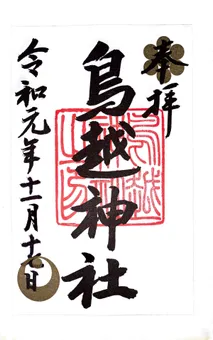 奉拝
鳥越神社
令和元年十一月十七日